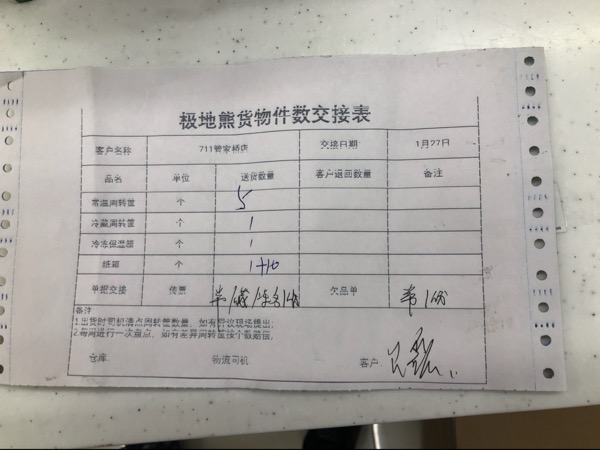 极地熊货物件数交接表
客户名称 711管家桥店 交接日期: 1月27日
品名 单位 送货数量 客户退回数量 备注
常温周转筐 个 5
冷藏周转筐 个 1
冷冻保温箱 个 1
纸箱 个 1+10
单据交接 传票 欠品单
备注
1.出货时司机清点周转筐数量, 如有异议现场提出;
2.每周进行一次盘点, 如有差异周转筐按个数赔偿,
仓库: 物流司机 客户: